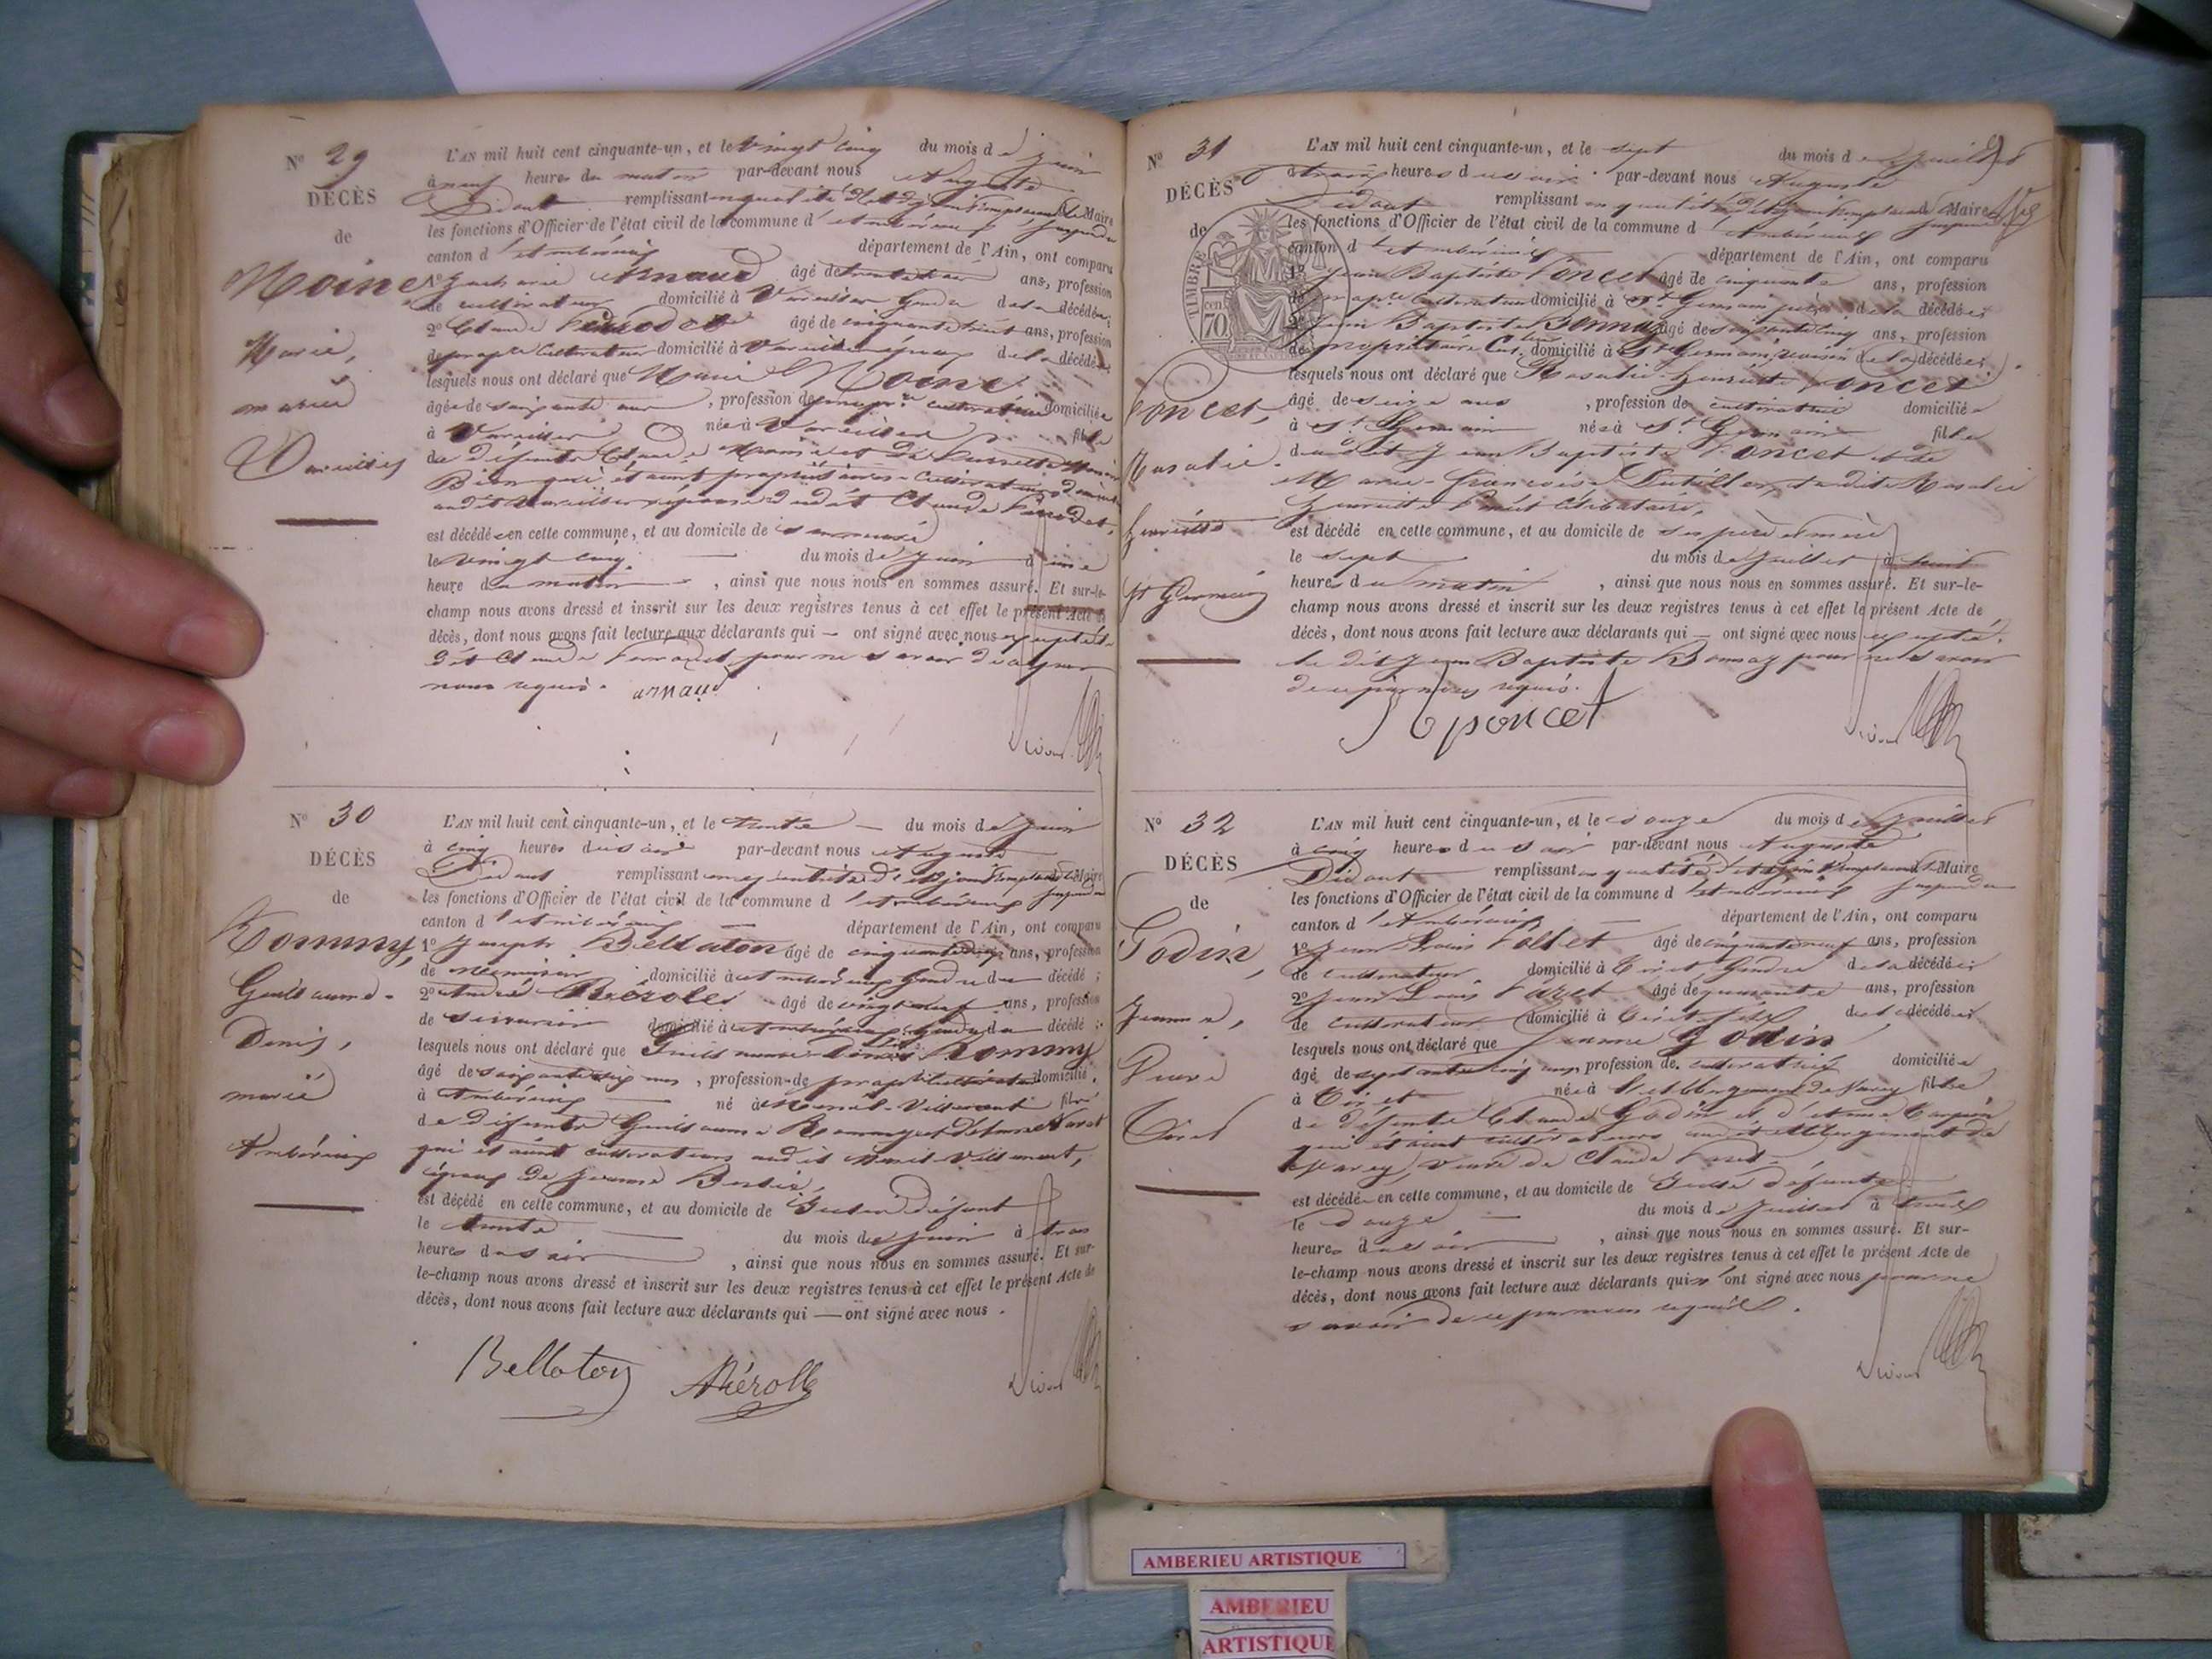 N° 29
DÉCÈS
de
Moine
Marie,
mariée
Vareilles
L'AN mil huit cent cinquante-un, et le vingt cinq du mois de juin
à neuf heures du matin par-devant nous Auguste
Didout remplissant en qualité d'adjoint remplaçant le Maire
les fonctions d'Officier de l'état civil de la commune d'Ambérieux
canton d'Ambérieux département de l'Ain, ont comparu
1° Arnaud âgé de ans, profession
de cultivateur domicilié à Vareilles gendre de la décédée;
2° Claude Perrodet âgé de cinquante huit ans, profession
de propre cultivateur domicilié à Vareilles époux de la décédée;
lesquels nous ont déclaré que Marie Moine
âgée de soixante ans, profession de cultivatrice domiciliée
à Vareilles née à Vareilles fille
de défunts Claude Moine et de
étaient propriétaires cultivateurs
audit Vareilles épouse dudit Claude Perrodet,
est décédée en cette commune, et au domicile de son mari
le vingt cinq du mois de juin à une
heure du matin, ainsi que nous nous en sommes assuré. Et sur-le-
champ nous avons dressé et inscrit sur les deux registres tenus à cet effet le présent Acte de
décès, dont nous avons fait lecture aux déclarants qui — ont signé avec nous excepté le
dit Claude Perrodet pour ne savoir de ce par
nous requis. arnaud
N° 30
DÉCÈS
de
Rommy,
Guillaume-
Denis,
marié
Ambérieux
L'AN mil huit cent cinquante-un, et le trente — du mois de juin
à cinq heures du soir par-devant nous Auguste
Didout remplissant en qualité d'adjoint remplaçant le Maire
les fonctions d'Officier de l'état civil de la commune d'Ambérieux
canton d'Ambérieux — département de l'Ain, ont comparu
1° Joseph Bellaton âgé de ans, profession
de menuisier domicilié à Ambérieux gendre du décédé;
2° André Mérolle âgé de vingt neuf ans, profession
de serrurier domicilié à Ambérieux gendre du décédé;
lesquels nous ont déclaré que Guillaume Denis Rommy
âgé de ans, profession de propre cultivateur domicilié
à Ambérieux né à Mesnil-Villement fils
de défunts Guillaume Rommy et
qui étaient cultivateurs audit Mesnil-Villement,
époux de Jeanne
est décédé en cette commune, et au domicile de
le trente du mois de juin à trois
heures du soir, ainsi que nous nous en sommes assuré. Et sur-
le-champ nous avons dressé et inscrit sur les deux registres tenus à cet effet le présent Acte de
décès, dont nous avons fait lecture aux déclarants qui — ont signé avec nous.
Bellaton Mérolle
N° 31
DÉCÈS
de
TIMBRE
cen
70
Poncet,
Rosalie-
Henriette
St Germain
L'AN mil huit cent cinquante-un, et le sept du mois de juillet
à trois heures du soir par-devant nous Auguste
Didout remplissant en qualité d'adjoint remplaçant le Maire
les fonctions d'Officier de l'état civil de la commune d'Ambérieux
canton d'Ambérieux département de l'Ain, ont comparu
1° Jean Baptiste Poncet âgé de cinquante ans, profession
de propre cultivateur domicilié à St Germain père de la décédée;
2° Jean Baptiste Bonnaz âgé de soixante cinq ans, profession
de propriétaire cult. domicilié à St Germain, voisin de la décédée;
lesquels nous ont déclaré que Rosalie-Henriette Poncet
âgée de seize ans, profession de cultivatrice domiciliée
à St Germain née à St Germain fille
dudit Jean Baptiste Poncet et de
Marie-Françoise ladite Rosalie
Henriette Poncet célibataire,
est décédé en cette commune, et au domicile de ses père et mère
le sept du mois de juillet à huit
heures du matin, ainsi que nous nous en sommes assuré. Et sur-le-
champ nous avons dressé et inscrit sur les deux registres tenus à cet effet le présent Acte de
décès, dont nous avons fait lecture aux déclarants qui — ont signé avec nous excepté
le dit Jean Baptiste Bonnaz pour ne savoir
de ce par nous requis.
poncet
N° 32
DÉCÈS
de
Godin,
Jeanne,
Veuve
Tiret
L'AN mil huit cent cinquante-un, et le douze du mois de juillet
à cinq heures du soir par-devant nous Auguste
Didout remplissant en qualité d'adjoint remplaçant le Maire
les fonctions d'Officier de l'état civil de la commune d'Ambérieux
canton d'Ambérieux — département de l'Ain, ont comparu
1° Jean Louis âgé de cinquante neuf ans, profession
de cultivateur domicilié à Tiret, gendre de la décédée;
2° Jean Louis âgé de quarante ans, profession
de cultivateur domicilié à Tiret fils de la décédée;
lesquels nous ont déclaré que Jeanne Godin
âgée de septante cinq ans, profession de cultivatrice domiciliée
à Tiret née à l'Abbergement de Varey fille
de défunts Claude Godin et d'
qui étaient cultivateurs audit Abbergement de
Varey, veuve de Claude
est décédée en cette commune, et au domicile de défunte
le douze — du mois de juillet à trois
heures du soir, ainsi que nous nous en sommes assuré. Et sur-
le-champ nous avons dressé et inscrit sur les deux registres tenus à cet effet le présent Acte de
décès, dont nous avons fait lecture aux déclarants qui n'ont signé avec nous pour ne
savoir de ce par nous requis.
AMBERIEU ARTISTIQUE
AMBERIEU
ARTISTIQUE